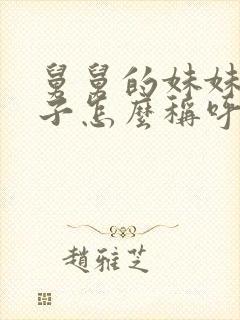 舅舅的妹妹
子怎麼稱呼
趙雅芝